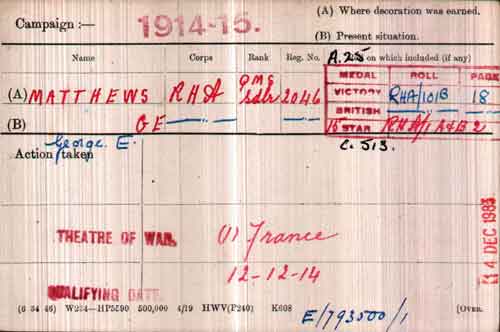 Campaign :— 1914-15.
(A) Where decoration was earned.
(B) Present situation.
Name Corps Rank Reg. No. A.25 on which included (if any)
MEDAL ROLL PAGE
(A) MATTHEWS RHA QMS 2046 VICTORY RHA/101B 18
BRITISH
(B) GE 15 STAR RHA/1A&B 2
George E. C. 513.
Action taken
THEATRE OF WAR. (1) France
12-12-14
QUALIFYING DATE.
14 DEC 1983
(6 34 46) W234—HP5590 500,000 4/19 HWV(P240) K608
E/793500/1
[Over.